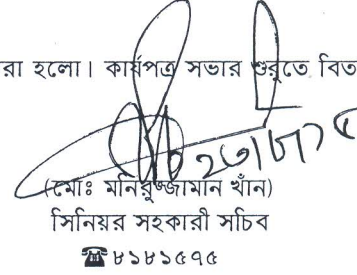 রা হলো। কার্যপত্র সভার শুরুতে বিত
(মোঃ মনিরুজ্জামান খাঁন)
সিনিয়র সহকারী সচিব
☎৮১৮১৫৭৫